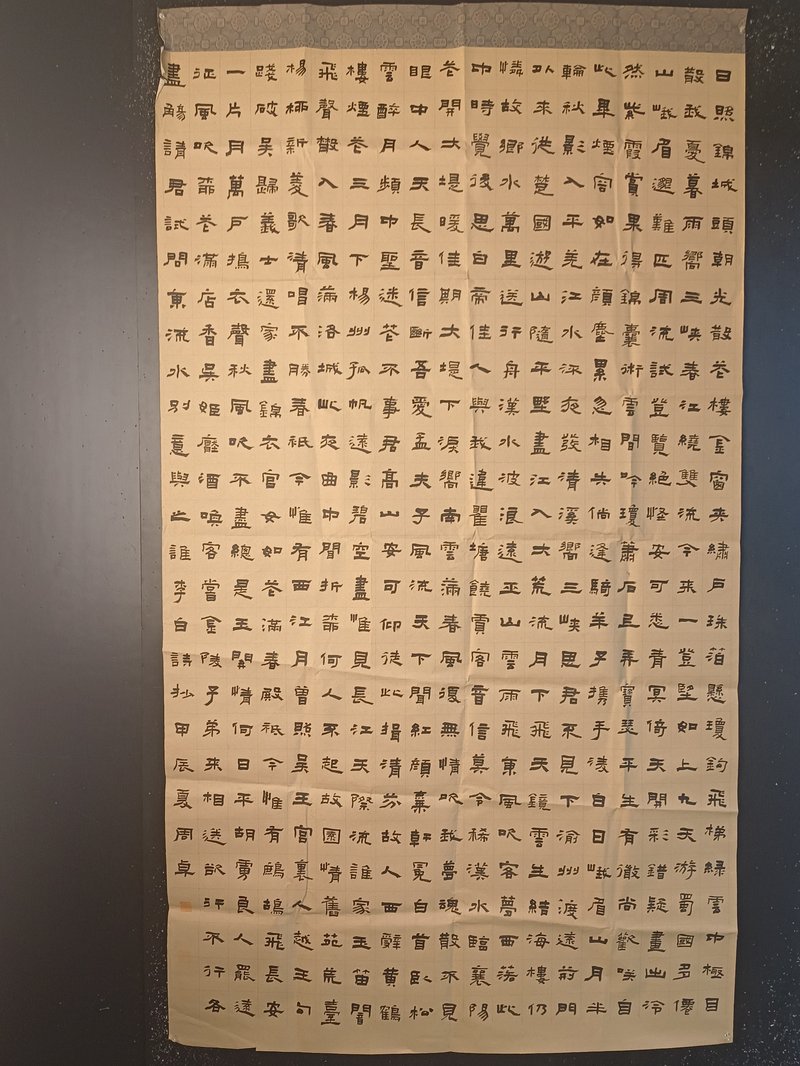 日照錦城頭朝光散花樓金窗夾繡戶珠箔懸瓊鉤飛梯綠雲中極目
散我憂暮雨嚮三峽春江繞雙流今來一登望如上九天游蜀國多僊
山峨眉邈難匹周流試登覽絕怪安可悉青冥倚天開彩錯疑畫出泠
然紫霞賞果得錦囊術雲間吟瓊簫石上弄寶瑟平生有微尚歡咲自
此畢煙容如在顏塵累忽相失倘逢騎羊子攜手淩白日峨眉山月半
輪秋影入平羌江水流夜發清溪嚮三峽思君不見下渝州渡遠荊門
外來從楚國遊山隨平野盡江入大荒流月下飛天鏡雲生結海樓仍
憐故鄉水萬里送行舟漢水波浪遠巫山雲雨飛東風吹客夢西落此
中時覺後思白帝佳人與我違瞿塘饒賈客音信莫令稀漢水臨襄陽
花開大堤暖佳期大堤下淚嚮南雲滿春風復無情吹我夢魂散不見
眼中人天長音信斷吾愛孟夫子風流天下聞紅顏棄軒冕白首臥松
雲醉月頻中聖迷花不事君高山安可仰徒此揖清芬故人西辭黃鶴
樓煙花三月下楊州孤帆遠影碧空盡惟見長江天際流誰家玉笛闇
飛聲散入春風滿洛城此夜曲中聞折柳何人不起故園情舊苑荒臺
楊柳新菱歌清唱不勝春祇今惟有西江月曾照吳王宮裏人越王句
踐破吳歸義士還家盡錦衣宮女如花滿春殿祇今惟有鷓鴣飛長安
一片月萬戶搗衣聲秋風吹不盡總是玉關情何日平胡虜良人罷遠
征風吹柳花滿店香吳姬壓酒喚客嘗金陵子弟來相送欲行不行各
盡觴請君試問東流水別意與之誰李白詩抄甲辰夏周卓